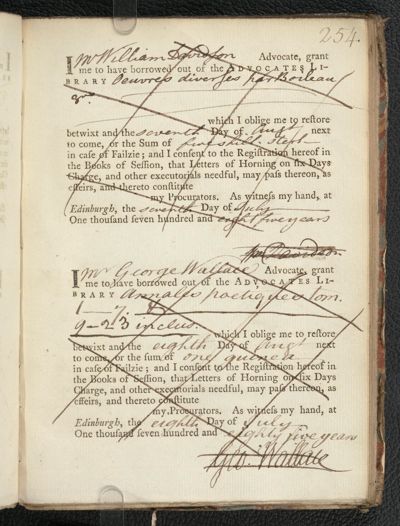 254.
I Mr William Davidson Advocate, grant
me to have borrowed out of the ADVOCATES LI-
BRARY Oeuvres diverses par Boileau
8vo.
which I oblige me to reſtore
betwixt and the seventh Day of Augt next
to come, or the Sum of five shill. Sterl.
in caſe of Failzie; and I conſent to the Regiſtration hereof in
the Books of Seſſion, that Letters of Horning on ſix Days
Charge, and other executorials needful, may paſs thereon, as
effeirs, and thereto conſtitute
my Procurators. As witneſs my hand, at
Edinburgh, the seventh Day of July
One thouſand ſeven hundred and eighty five years
Wm Davidson
I Mr George Wallace Advocate, grant
me to have borrowed out of the ADVOCATES LI-
BRARY Annales poetiques tom.
1 – 7.
9 – 23 inclus. which I oblige me to reſtore
betwixt and the eighth Day of Augt next
to come, or the ſum of one guinea
in caſe of Failzie; and I conſent to the Regiſtration hereof in
the Books of Seſſion, that Letters of Horning on ſix Days
Charge, and other executorials needful, may paſs thereon, as
effeirs, and thereto conſtitute
my Procurators. As witneſs my hand, at
Edinburgh, the eighth Day of July
One thouſand ſeven hundred and eighty five years
Geo. Wallace